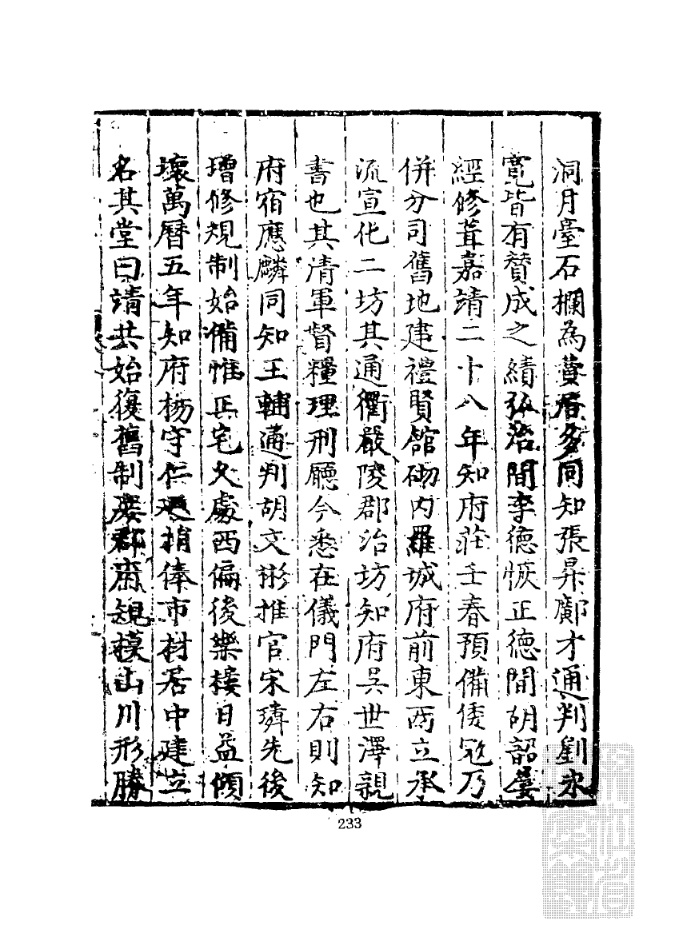 洞月臺石攔為費居多同知張昇鄺才通判劉永
寛皆有贊成之績弘治間李德恢正德間胡韶屢
經修葺嘉靖二十八年知府莊壬春預備倭冦乃
併分司舊地建禮賢舘砌内羅城府前東西立承
流宣化二坊其通衢嚴陵郡治坊知府吳世澤親
書也其清軍督糧理刑廳今悉在儀門左右則知
府宿應麟同知王輔通判胡文彬推官宋璘先後
增修規制始備惟正宅久處西偏後樂樓日益傾
壞萬曆五年知府楊守仁捐俸市材居中建立
名其堂曰靖共始復舊制郡府規模山川形勝
233